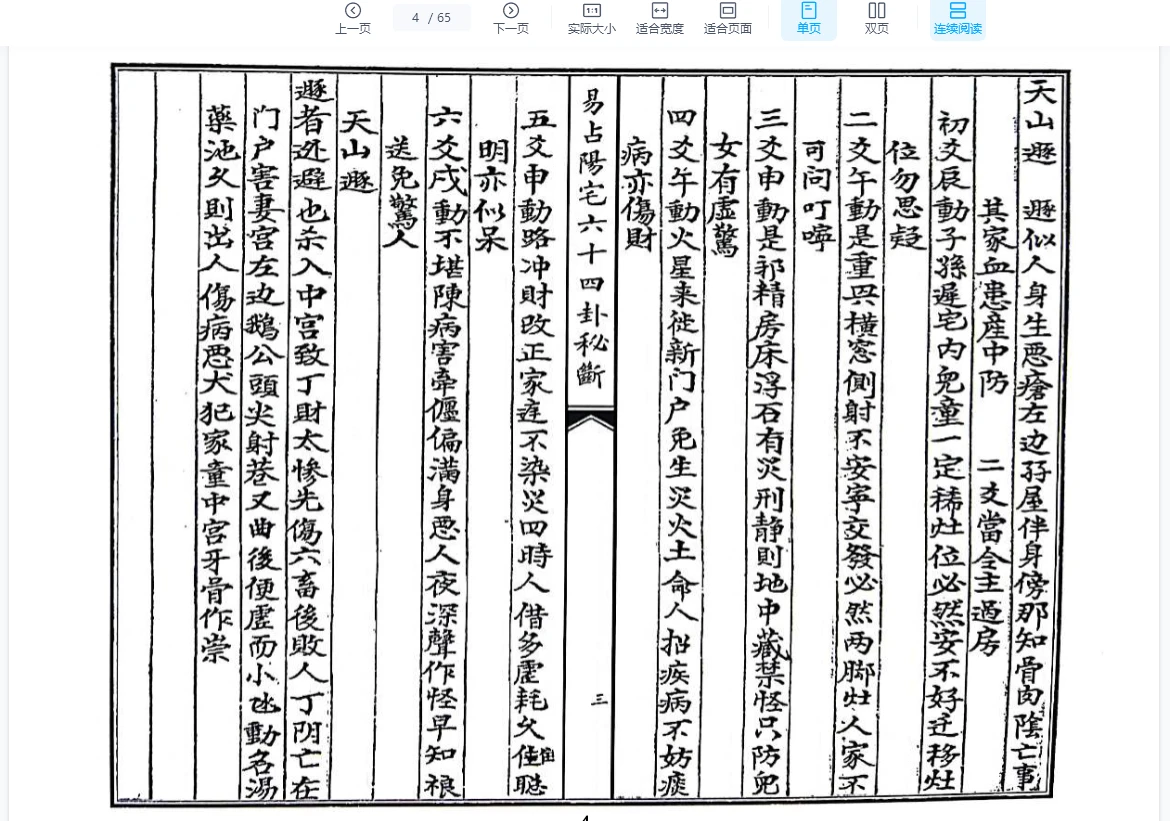 上一页
4 / 65
下一页
实际大小
适合宽度
适合页面
单页
双页
连续阅读
天山遯 遯似人身生恶瘡左边孖屋伴身傍那知骨肉陰亡事
其家血患産中防 二爻當令主過房
初爻辰動子孫遲宅内兒童一定稀灶位必然安不好迁移灶
位勿思疑
二爻午動是重㒷横窓側射不安寧交發必然两脚灶人家不
可问叮嚀
三爻申動是邪精房床浮石有災刑静則地中藏禁怪只防兒
女有虚驚
四爻午動火星来徙新门户免生災火土命人招疾病不妨瘓
病亦傷財
易占陽宅六十四卦秘斷
三
五爻申動路冲財改正家庭不染災四時人借多虚耗久住聪
明亦似呆
六爻戌動不堪陳病害牵僵偏满身恶人夜深聲作怪早知禳
送免驚人
天山遯
遯者迯避也杀入中宫致丁財太惨先傷六畜後敗人丁阴亡在
门户害妻宫左边鵝公頭尖射巷又曲後便虚而小冲動名湯
藥池久則出人傷病恶犬犯家童中宫牙骨作祟
4